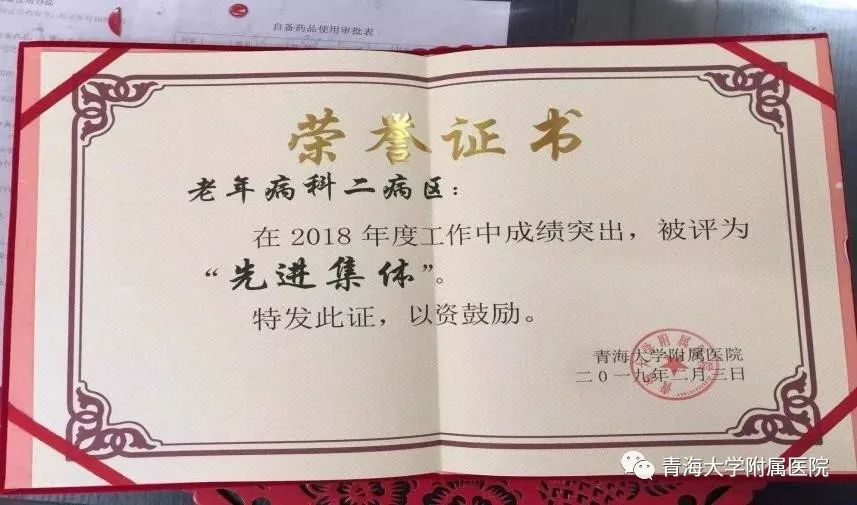 自备药品使用审批表
荣誉证书
老年病科二病区：
在 2018 年度工作中成绩突出，被评为
“先进集体”。
特发此证，以资鼓励。
青海大学附属医院
二〇一九年二月三日
青海大学附属医院